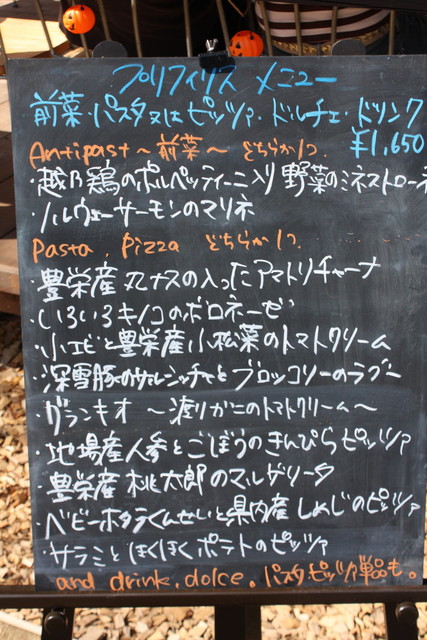 プリフィクス メニュー
前菜・パスタ又はピッツァ・ドルチェ・ドリンク
¥1,650
Antipast～前菜～ どちらか1つ.
・越乃鶏のポルペッティーニ入り野菜のミネストローネ
・ノルウェーサーモンのマリネ
Pasta, Pizza どちらか1つ.
・豊栄産丸ナスの入ったアマトリチャーナ
・いろいろキノコのボロネーゼ
・小エビと豊栄産小松菜のトマトクリーム
・深雪豚のサルシッチャとブロッコリーのラグー
・グランキオ ～渡りガニのトマトクリーム～
・地場産人参とごぼうのきんぴらピッツァ
・豊栄産 桃太郎のマルゲリータ
・ベビーホタテくんせいと県内産しめじのピッツァ
・サラミとほくほくポテトのピッツァ
and drink. dolce. パスタピッツァ単品も。